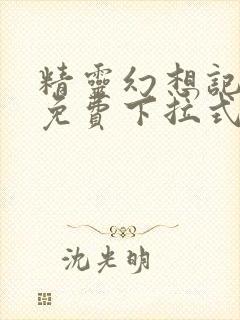 精靈幻想記
免費下拉式
沈光明